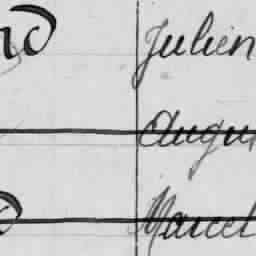 nd Julien
Augu
d Marcel